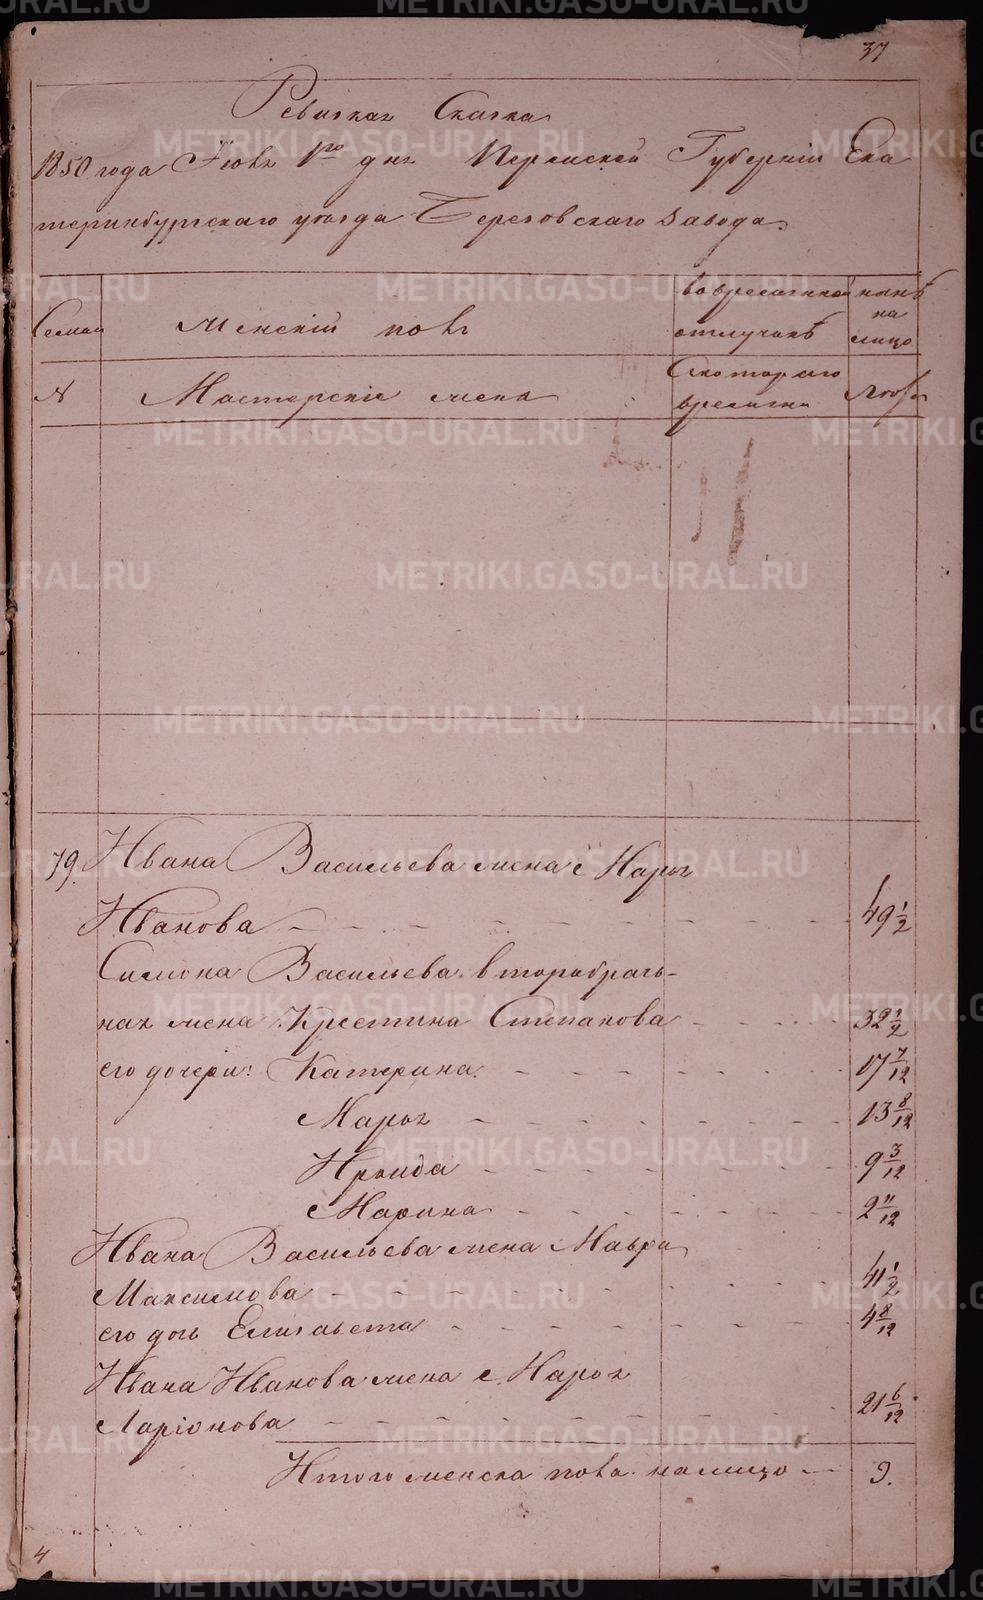 37
Ревизкая Сказка
1850 года Июня 1го дня Пермской Губернiи Ека
теринбургскаго уезда Березовскаго завода.
Семьи
Женскiй полъ
во временной
отлучкѣ
нынѣ
на
лицо
№
Мастерскiе жена
Съ котораго
времяни
Лѣта
79. Ивана Васильева жена Марья
Иванова 49 1/2
Симiона Васильева второбрачь-
ная жена Крестина Степанова 32 1/2
его дочери: Катерина 17 7/12
Марья 13 8/12
Ираида 9 3/12
Марина 2 11/12
Ивана Васильева жена Мавра
Максимова 41 1/2
его дочь Елизавета 4 8/12
Ивана Иванова жена Марья
Ларiонова 21 6/12
Итого женска пола налицо 9.
4
METRIKI.GASO-URAL.RU